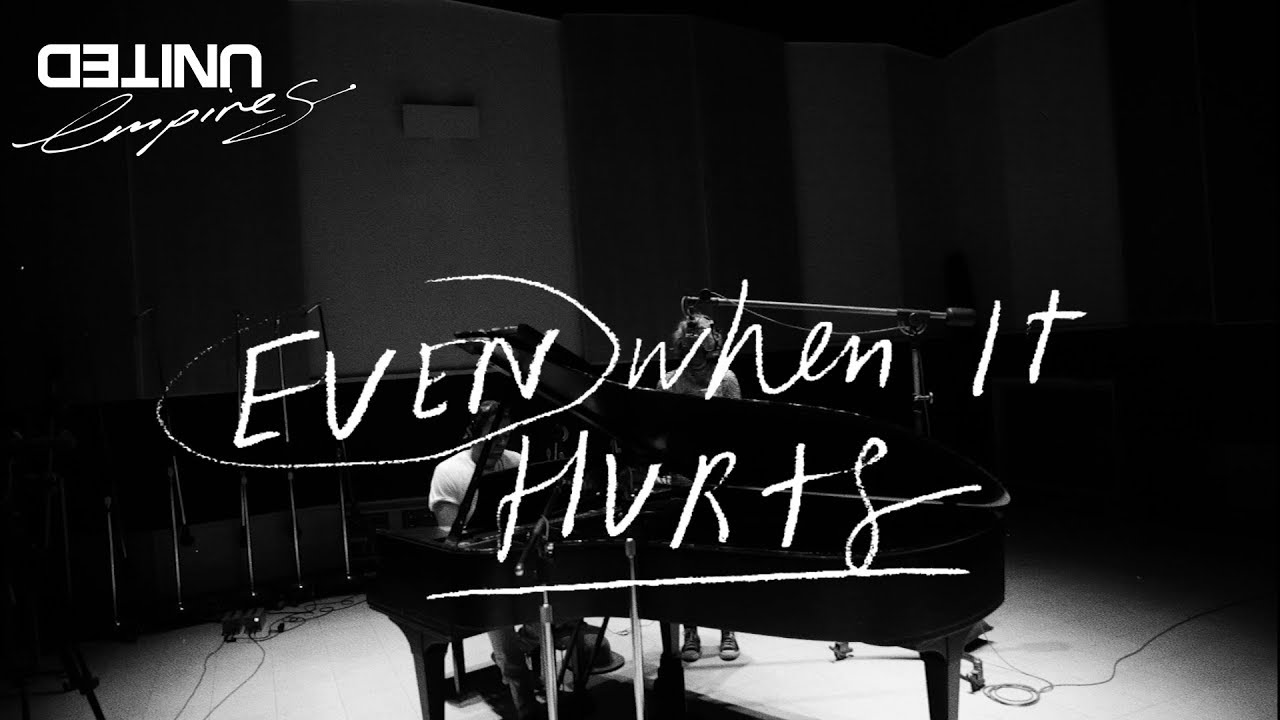 UNITED
empires
EVEN when It
HURtS